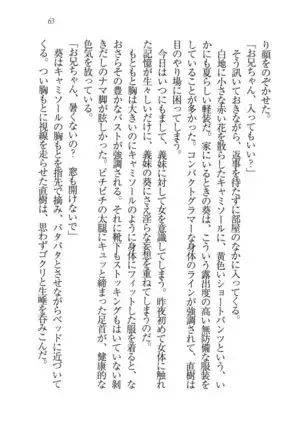 63
り顔をのぞかせた。
「お兄ちゃん、入ってもいい?」
そう訊いておきながら、返事を待たずに部屋のなかに入ってくる。
白地に小さな赤い花を散らしたキャミソールに、黄色いショートパンツという、い
かにも夏らしい軽装だ。家にいるときの葵は、こういう露出度の高い無防備な服装を
よくしている。コンパクトグラマーな身体のラインが強調されて、直樹は
目のやり場に困ってしまう。
義妹に対して女を意識してしまう。昨夜初めて女体に触れ
た記憶が生々しいだけに、義妹の葵にさえ淫らな妄想を重ねてしまうのだ。
もともと胸は大きいのにキャミソールのように身体にフィットした服を着ると、な
おさらその豊かなバストが強調される。それに靴下もストッキングもはいていない剥
きだしのナマ脚が眩しかった。ピチピチの太腿にキュッと締まった足首が、健康的な
色気を放っている。
「お兄ちゃん、暑くないの? 窓も開けないで」
葵はキャミソールの胸もとを指先で摘み、パタパタとさせながらベッドに近づいて
くる。つい胸もとに視線を走らせた直樹は、思わずゴクリと生唾を呑みこんだ。